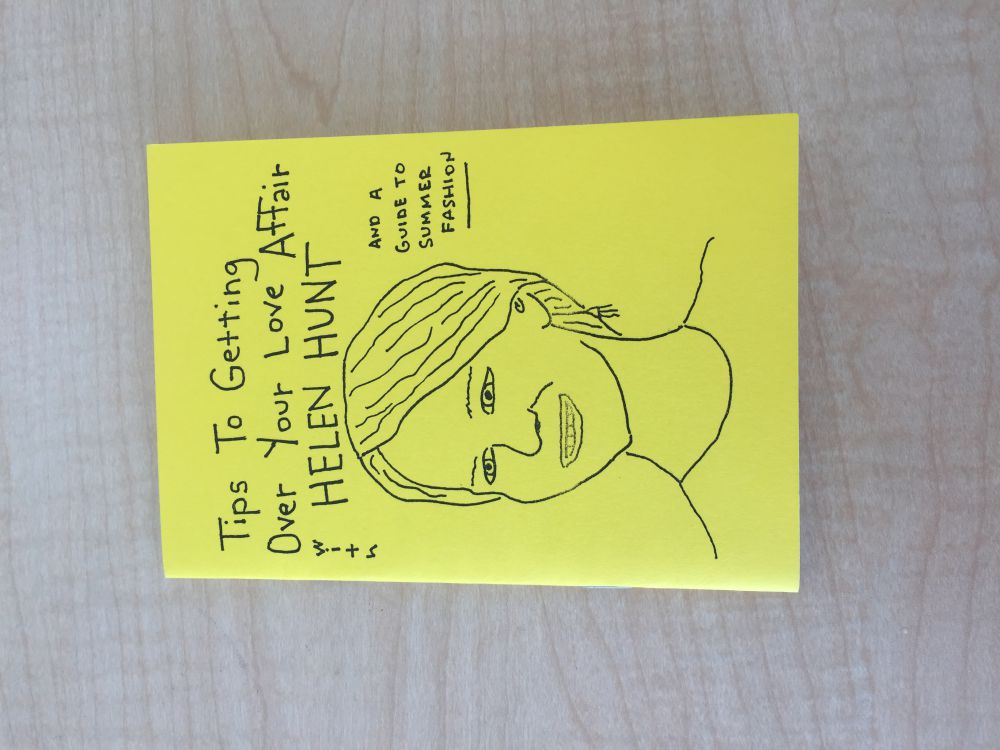 Tips To Getting
Over Your Love Affair
with HELEN HUNT
AND A
GUIDE TO
SUMMER
FASHION